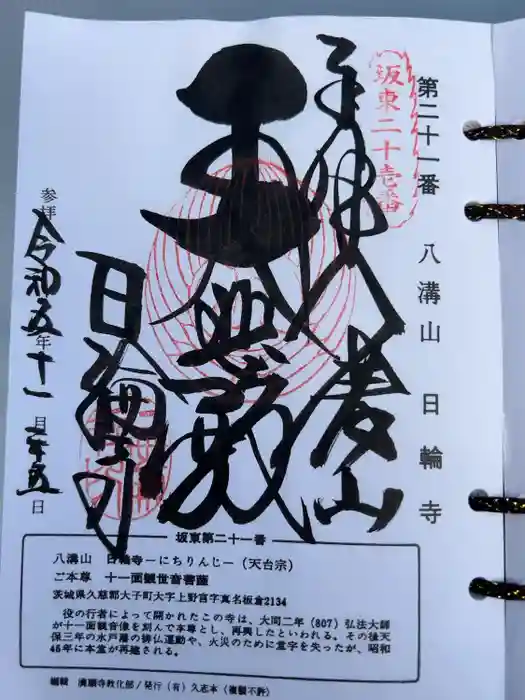 第二十一番 八溝山 日輪寺
坂東二十壱番
奉拝
八溝山
大悲殿
日輪寺
参拝 令和五年十一月二十五日
坂東第二十一番
八溝山 日輪寺−にちりんじ−（天台宗）
ご本尊 十一面観世音菩薩
茨城県久慈郡大子町大字上野宮字真名板倉2134
役の行者によって開かれたこの寺は、大同二年（807）弘法大師
が十一面観音像を刻んで本尊とし、再興したといわれる。その後天
保三年の水戸藩の排仏運動や、火災のために堂宇を失ったが、昭和
46年に本堂が再建される。
編輯 満願寺教化部／発行（有）久志本（複製不許）